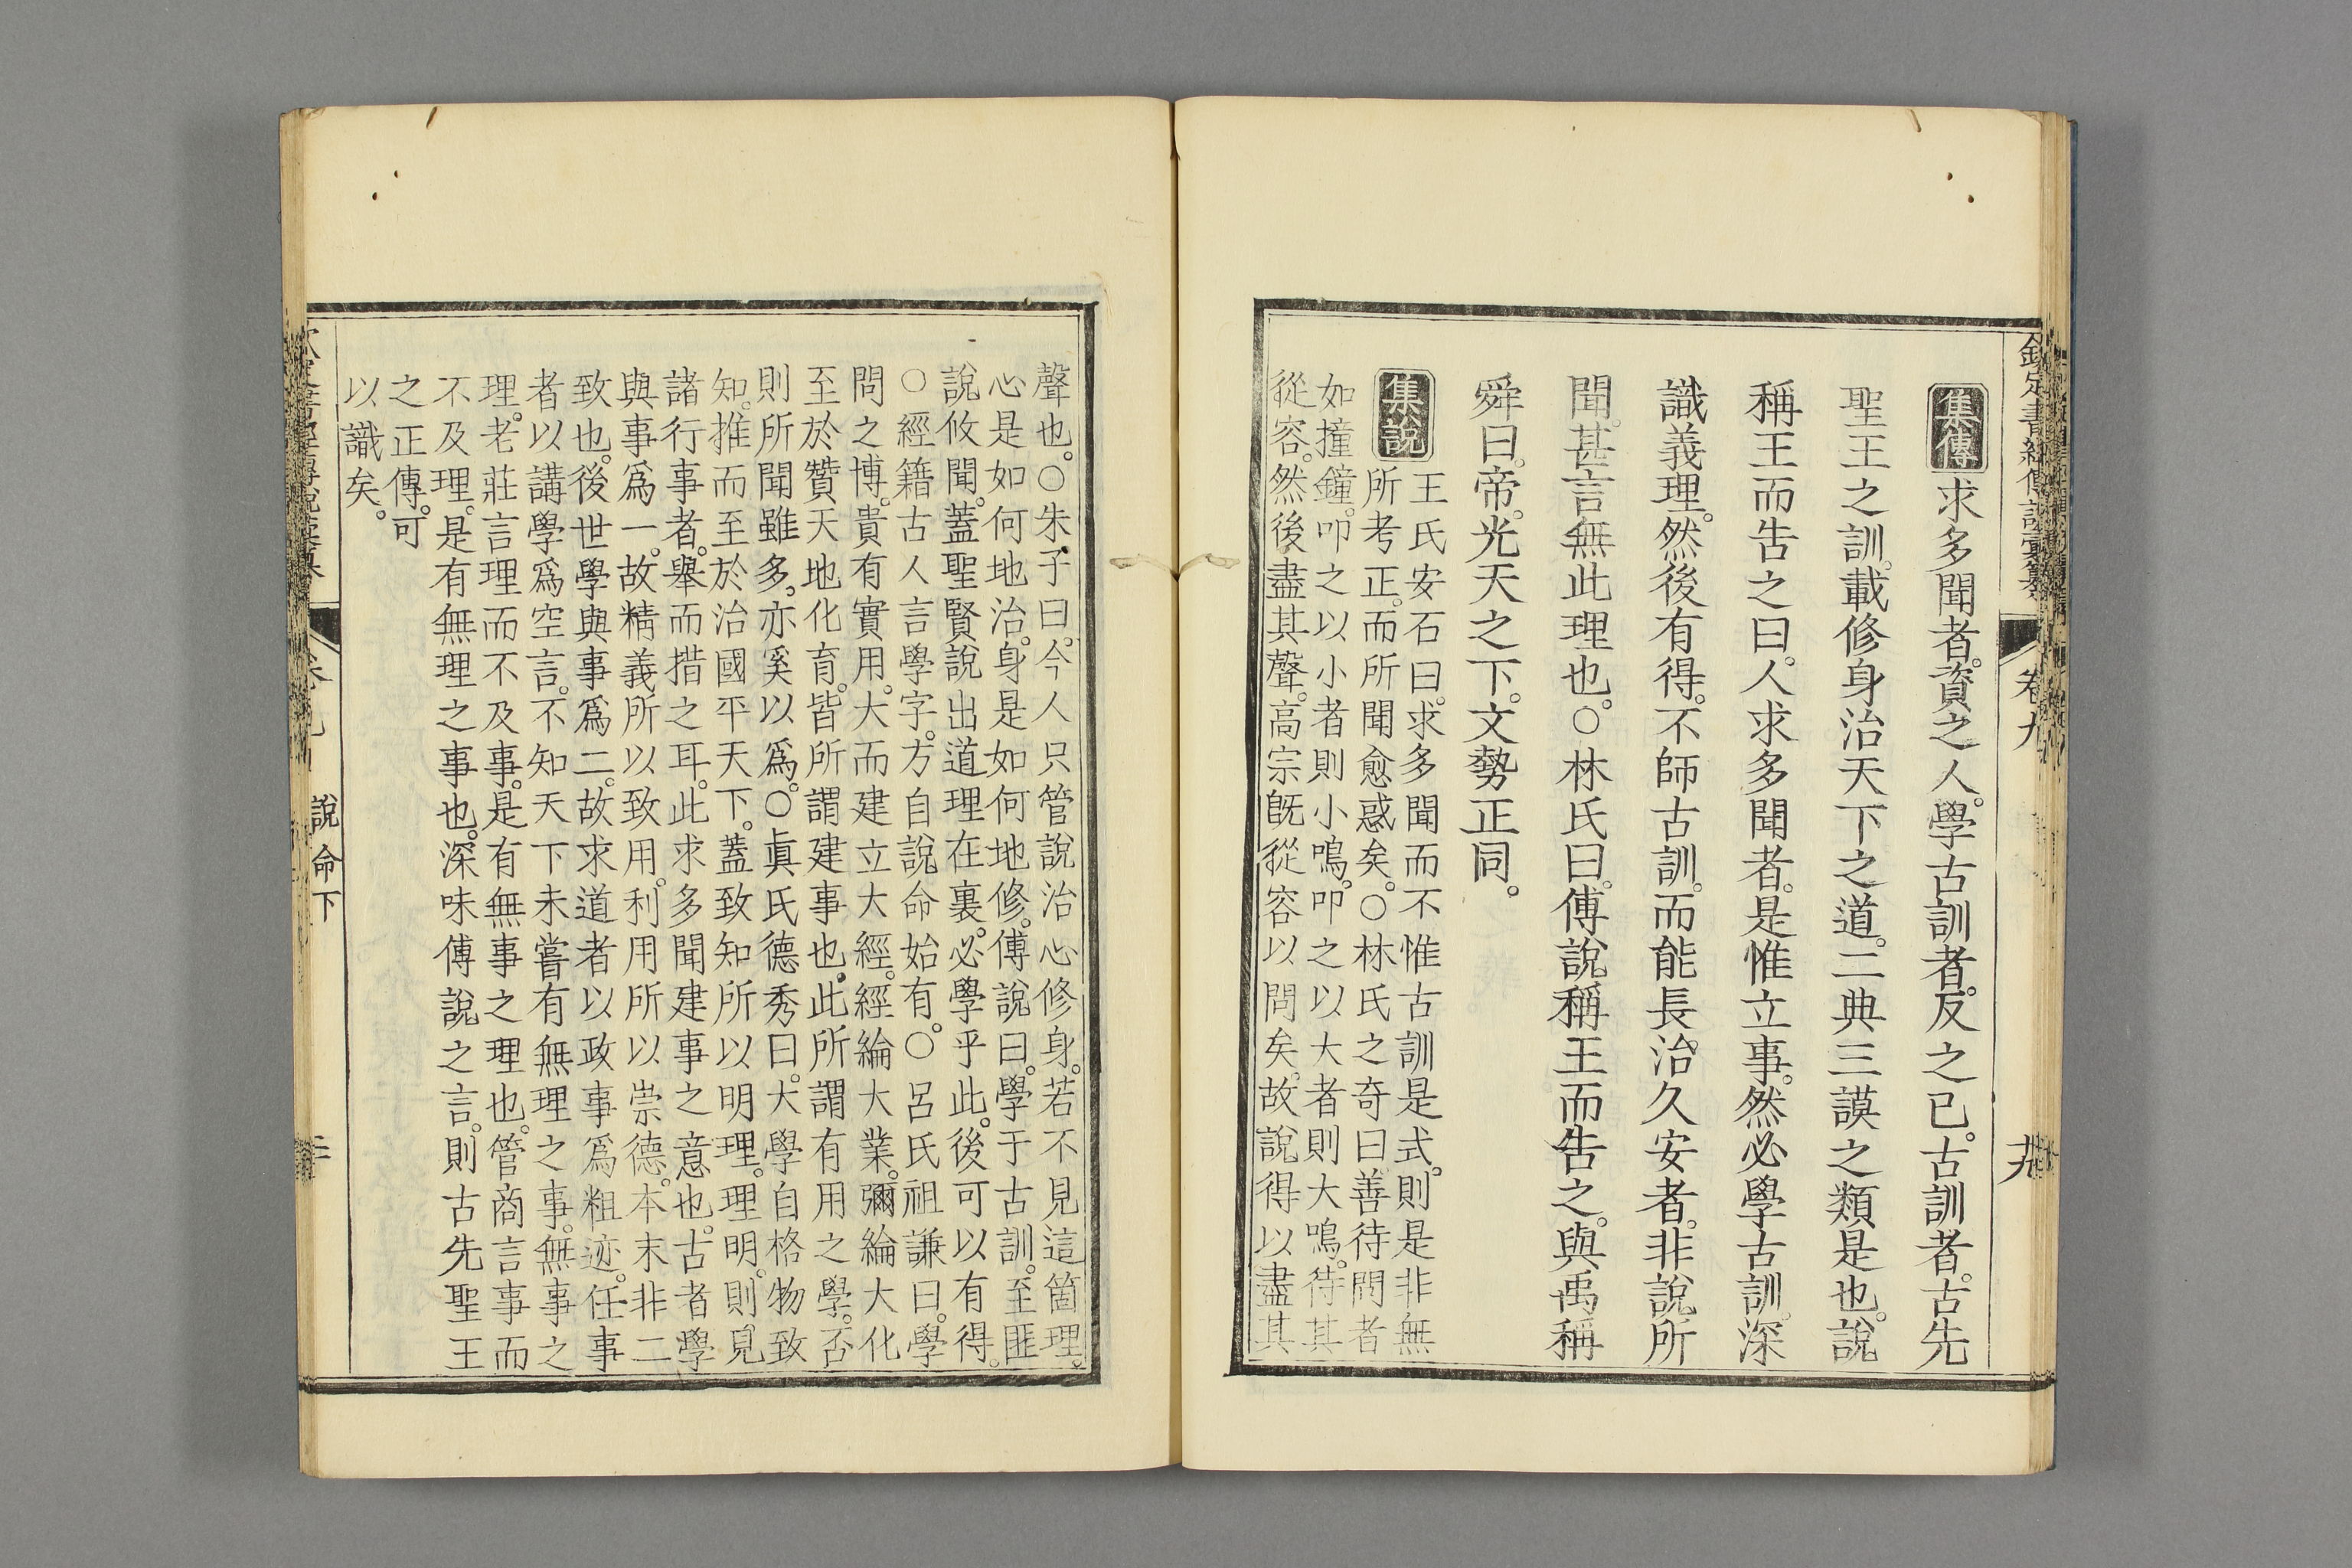 欽定書經傳說彙纂
卷九
十九
集傳 求多聞者。資之人。學古訓者。反之已。古訓者。古先
聖王之訓。載修身治天下之道。二典三謨之類是也。說
稱王而告之曰。人求多聞者。是惟立事。然必學古訓。深
識義理。然後有得。不師古訓。而能長治久安者。非說所
聞。甚言無此理也。○林氏曰。傅說稱王而告之。與禹稱
舜曰。帝。光天之下。文勢正同。
集說 王氏安石曰。求多聞而不惟古訓是式。則是非無
所考正。而所聞愈惑矣。○林氏之奇曰。善待問者
如撞鐘。叩之以小者則小鳴。叩之以大者則大鳴。待其
從容。然後盡其聲。高宗旣從容以問矣。故說得以盡其
聲也。○朱子曰。今人只管說治心修身。若不見這箇理。
心是如何地治。身是如何地修。傅說曰。學于古訓。至匪
說攸聞。蓋聖賢說出道理在裏。必學乎此。後可以有得。
○經籍古人言學字。方自說命始有。○呂氏祖謙曰。學
問之博。貴有實用。大而建立大經。經綸大業。彌綸大化
至於贊天地化育。皆所謂建事也。此所謂有用之學。否
則所聞雖多。亦奚以爲。○眞氏德秀曰。大學自格物致
知。推而至於治國平天下。蓋致知所以明理。理明。則見
諸行事者。舉而措之耳。此求多聞建事之意也。古者學
與事爲一。故精義所以致用。利用所以崇德。本末非二
致也。後世學與事爲二。故求道者以政事爲粗迹。任事
者以講學爲空言。不知天下未嘗有無理之事。無事之
理。老莊言理而不及事。是有無事之理也。管商言事而
不及理。是有無理之事也。深味傅說之言。則古先聖王
之正傳。可
以識矣。
說命下